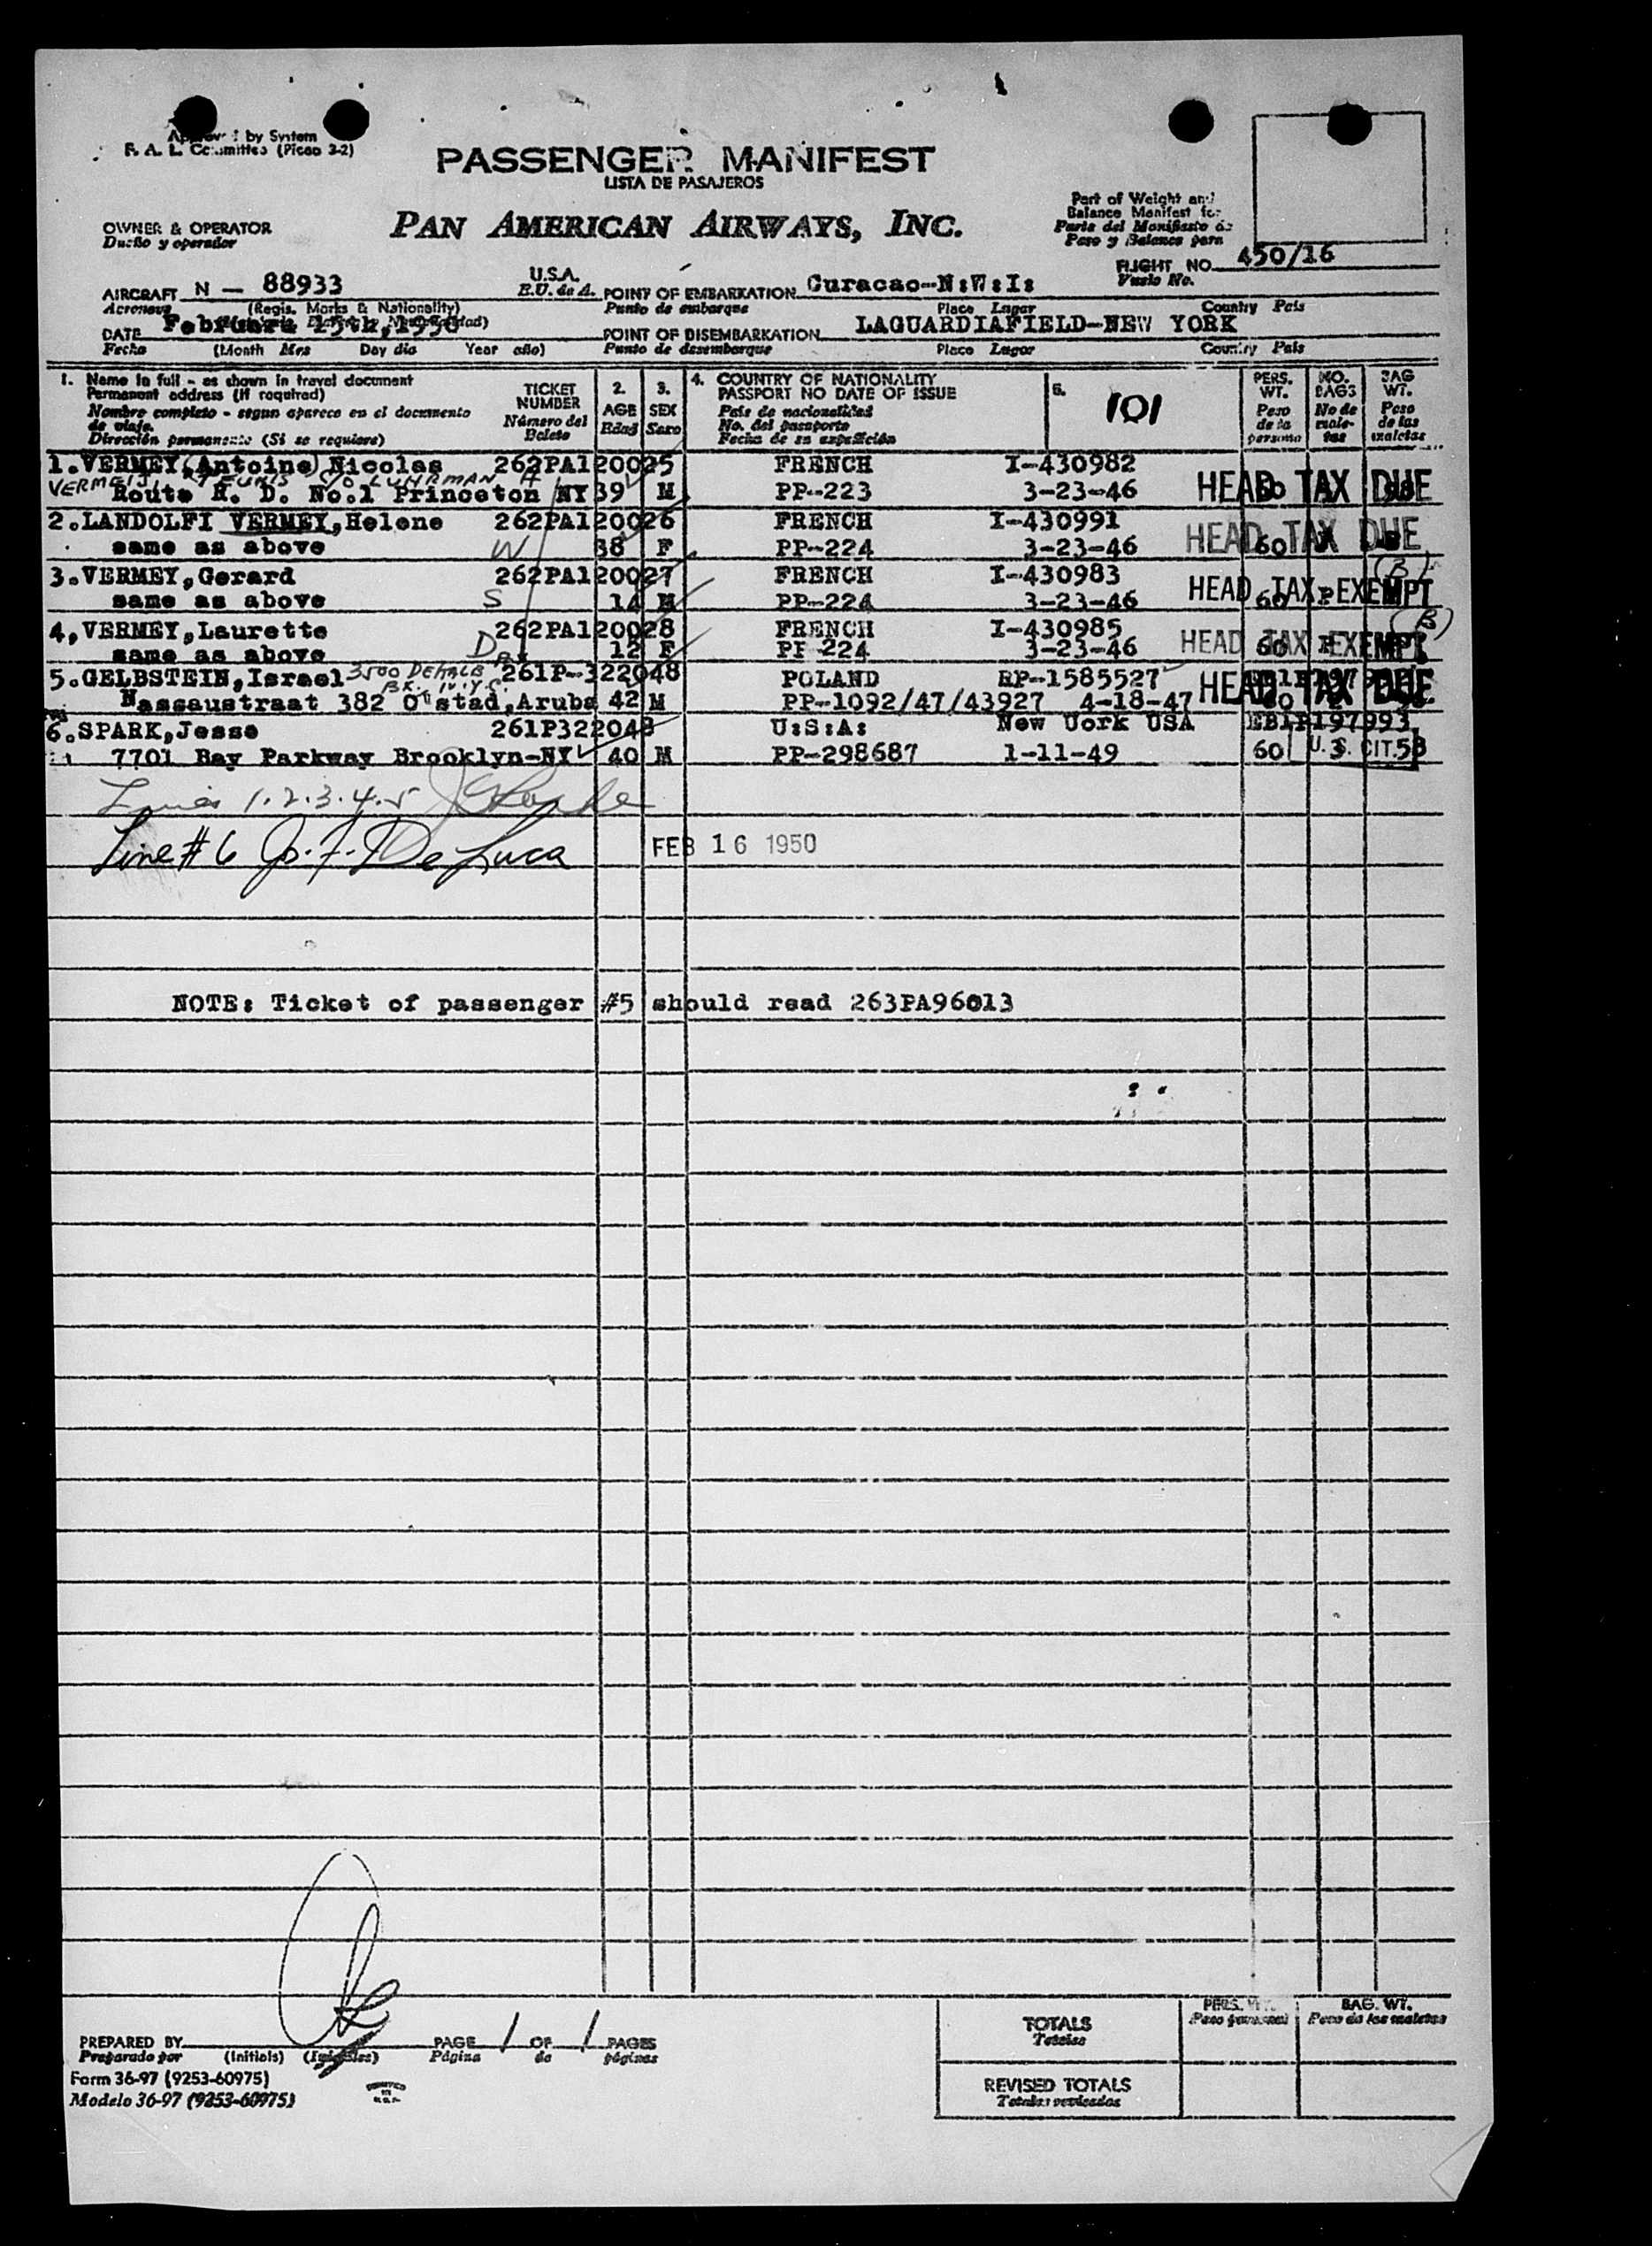 Approved by System
F. A. L. Committee (Picao 3-2)
PASSENGER MANIFEST
LISTA DE PASAJEROS
PAN AMERICAN AIRWAYS, INC.
OWNER & OPERATOR
Dueño y operador
Part of Weight and
Balance Manifest for
Parte del Manifiesto de
Peso y Balance para
FLIGHT NO. 450/16
Vuelo No.
AIRCRAFT N - 88933 U.S.A.
Aeronave (Regis. Marks & Nationality) E.U. de A.
POINT OF EMBARKATION Curacao-N:W:I:
Punto de embarque Place Lugar Country País
DATE Februara 15th, 1950
Fecha (Month Mes Day dia Year año)
POINT OF DISEMBARKATION LAGUARDIAFIELD-NEW YORK
Punto de desembarque Place Lugar Country País
1. Name in full - as shown in travel document
Permanent address (if required)
Nombre completo - segun aparece en el documento
de viaje.
Dirección permanente (Si se requiere)
TICKET
NUMBER
Número del
Boleto
2.
AGE
Edad
3.
SEX
Sexo
4. COUNTRY OF NATIONALITY
PASSPORT NO DATE OF ISSUE
País de nacionalidad
No. del pasaporte
Fecha de su expedición
5.
101
PERS.
WT.
Peso
de la
persona
NO.
BAGS
No de
male-
tas
BAG
WT.
Peso
de las
maletas
1.VERMEY,(Antoine) Nicolas 262PA120025 FRENCH I-430982
VERMEIJ, C/O LUHRMAN H
Route R. D. No.1 Princeton NY 39 M PP-223 3-23-46 HEAD TAX DUE
2.LANDOLFI VERMEY,Helene 262PA120026 FRENCH I-430991
same as above W 38 F PP-224 3-23-46 60 HEAD TAX DUE
3.VERMEY,Gerard 262PA120027 FRENCH I-430983 (B)
same as above S 14 M PP-224 3-23-46 60 HEAD TAX EXEMPT
4,VERMEY,Laurette 262PA120028 FRENCH I-430985 (B)
same as above D 12 F PP 224 3-23-46 60 HEAD TAX EXEMPT
5.GELBSTEIN,Israel 3500 DEKALB 261P-322048 POLAND RP-1585527
BK. N.Y.C.
Nassaustraat 382 O'stad,Aruba 42 M PP-1092/47/43927 4-18-47 HEAD TAX DUE
6.SPARK,Jesse 261P322048 U:S:A: New Uork USA EB1P197993
7701 Bay Parkway Brooklyn-NY 40 M PP-298687 1-11-49 60 U. S. CIT. 58
Lines 1.2.3.4.5
Line # 6 Jo. F. De Luca FEB 16 1950
NOTE: Ticket of passenger #5 should read 263PA96013
PREPARED BY
Preparado por (Initials) (Iniciales)
PAGE 1 OF 1 PAGES
Página de páginas
Form 36-97 (9253-60975)
Modelo 36-97 (9253-60975)
PERS. WT.
Peso personal
BAG. WT.
Peso de las maletas
TOTALS
Totales
REVISED TOTALS
Totales revisados